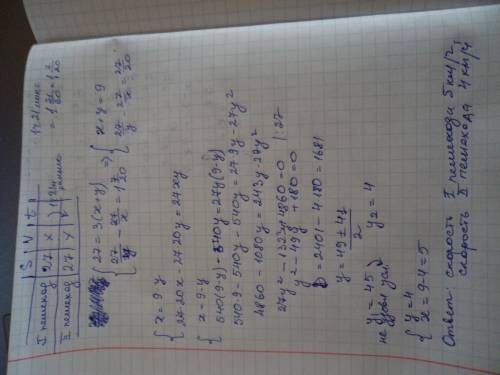 S V t
I пешеход 27 x
II пешеход 27 y
1 ч 21 мин =
= 1 21/60 = 1 7/20
{ 27 = 3(x+y)
27/y - 27/x = 1 7/20
⇒ { x+y = 9
27/y - 27/x = 27/20
{ x = 9-y
27·20x - 27·20y = 27xy
{ x = 9-y
540(9-y) - 540y = 27y(9-y)
540·9 - 540y - 540y = 27·9y - 27y²
4860 - 1080y = 243y - 27y²
27y² - 1323y + 4860 = 0 | : 27
y² - 49y + 180 = 0
D = 2401 - 4·180 = 1681
y = 49 ± 41 / 2
y₁ = 45 y₂ = 4
не удовл усл
{ y = 4
x = 9-4 = 5
Ответ: скорость I пешехода 5 км/ч,
скорость II пешехода 4 км/ч